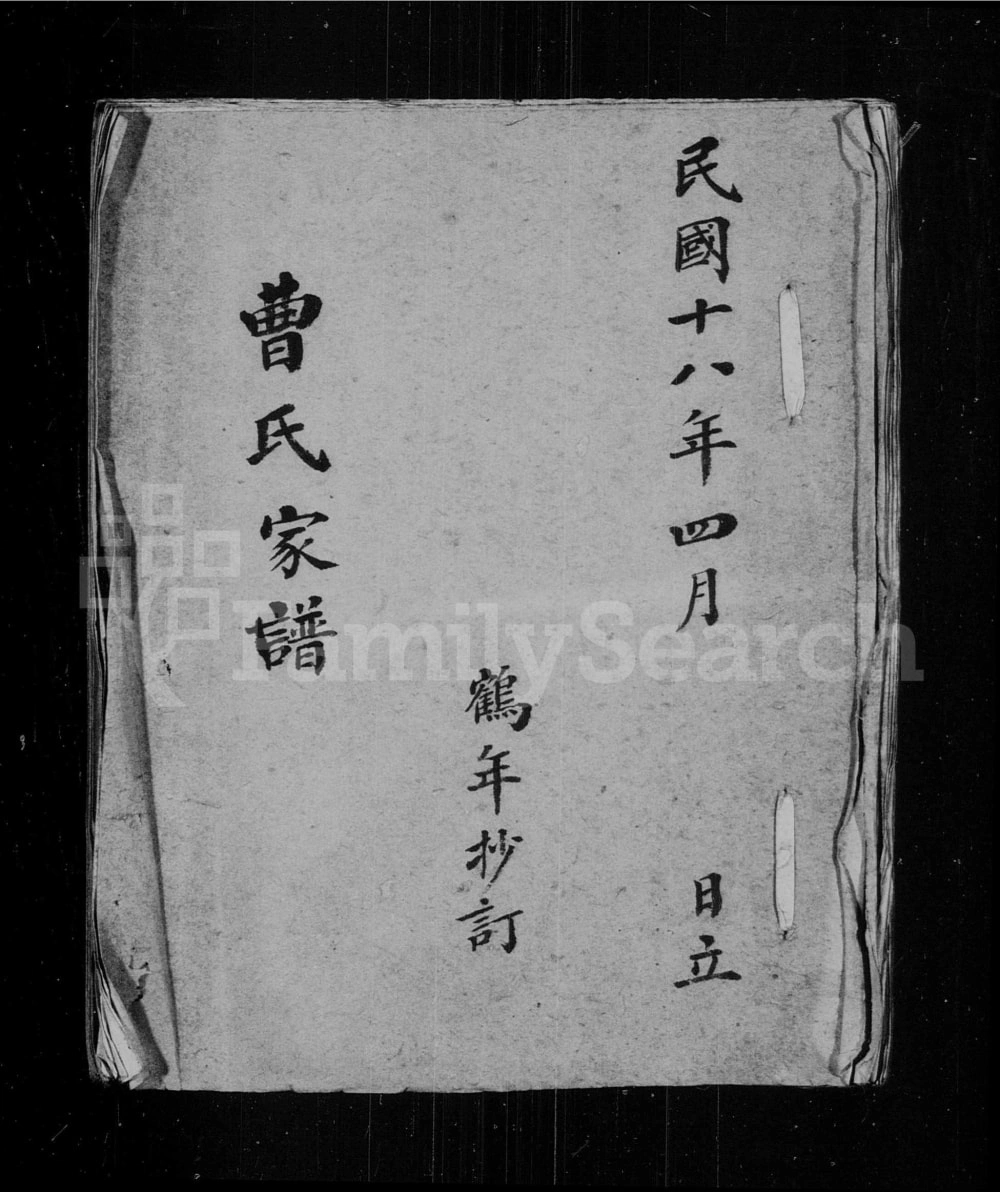 民國十八年四月　日立
鶴年抄訂
曹氏家譜
FamilySearch